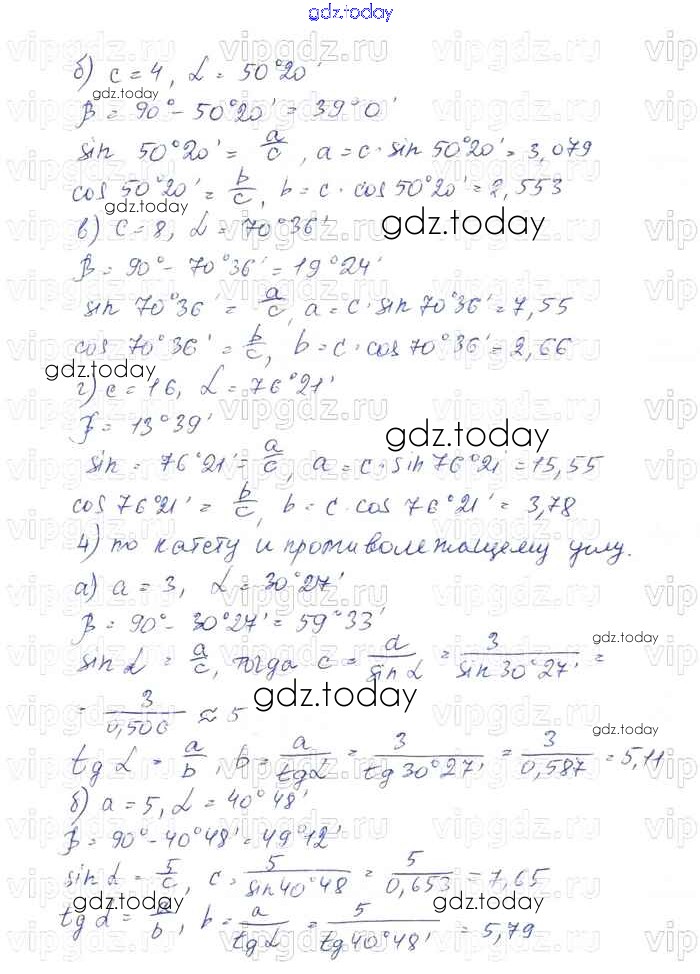 gdz.today
б) c = 4, α = 50°20'
gdz.today
β = 90° - 50°20' = 39°0'
sin 50°20' = a/c, a = c · sin 50°20' = 3,079
cos 50°20' = b/c, b = c · cos 50°20' = 2,553
gdz.today
в) c = 8, α = 70°36'
gdz.today
β = 90° - 70°36' = 19°24'
sin 70°36' = a/c, a = c · sin 70°36' = 7,55
cos 70°36' = b/c, b = c · cos 70°36' = 2,66
gdz.today
г) c = 16, α = 76°21'
β = 13°39'
gdz.today
sin = 76°21' = a/c, a = c · sin 76°21 = 15,55
cos 76°21' = b/c, b = c · cos 76°21' = 3,78
4) по катету и противолежащему углу.
а) a = 3, α = 30°27'
β = 90° - 30°27' = 59°33'
gdz.today
sin α = a/c, тогда c = a/sin α = 3/sin 30°27' =
gdz.today
= 3/0,506 ≈ 5
gdz.today
tg α = a/b, b = a/tg α = 3/tg 30°27' = 3/0,587 = 5,11
б) a = 5, α = 40°48'
β = 90° - 40°48' = 49°12'
sin α = 5/c, c = 5/sin 40°48 = 5/0,653 = 7,65
gdz.today
tg α = a/b, b = a/tg α = 5/tg 40°48' = 5,79
gdz.today